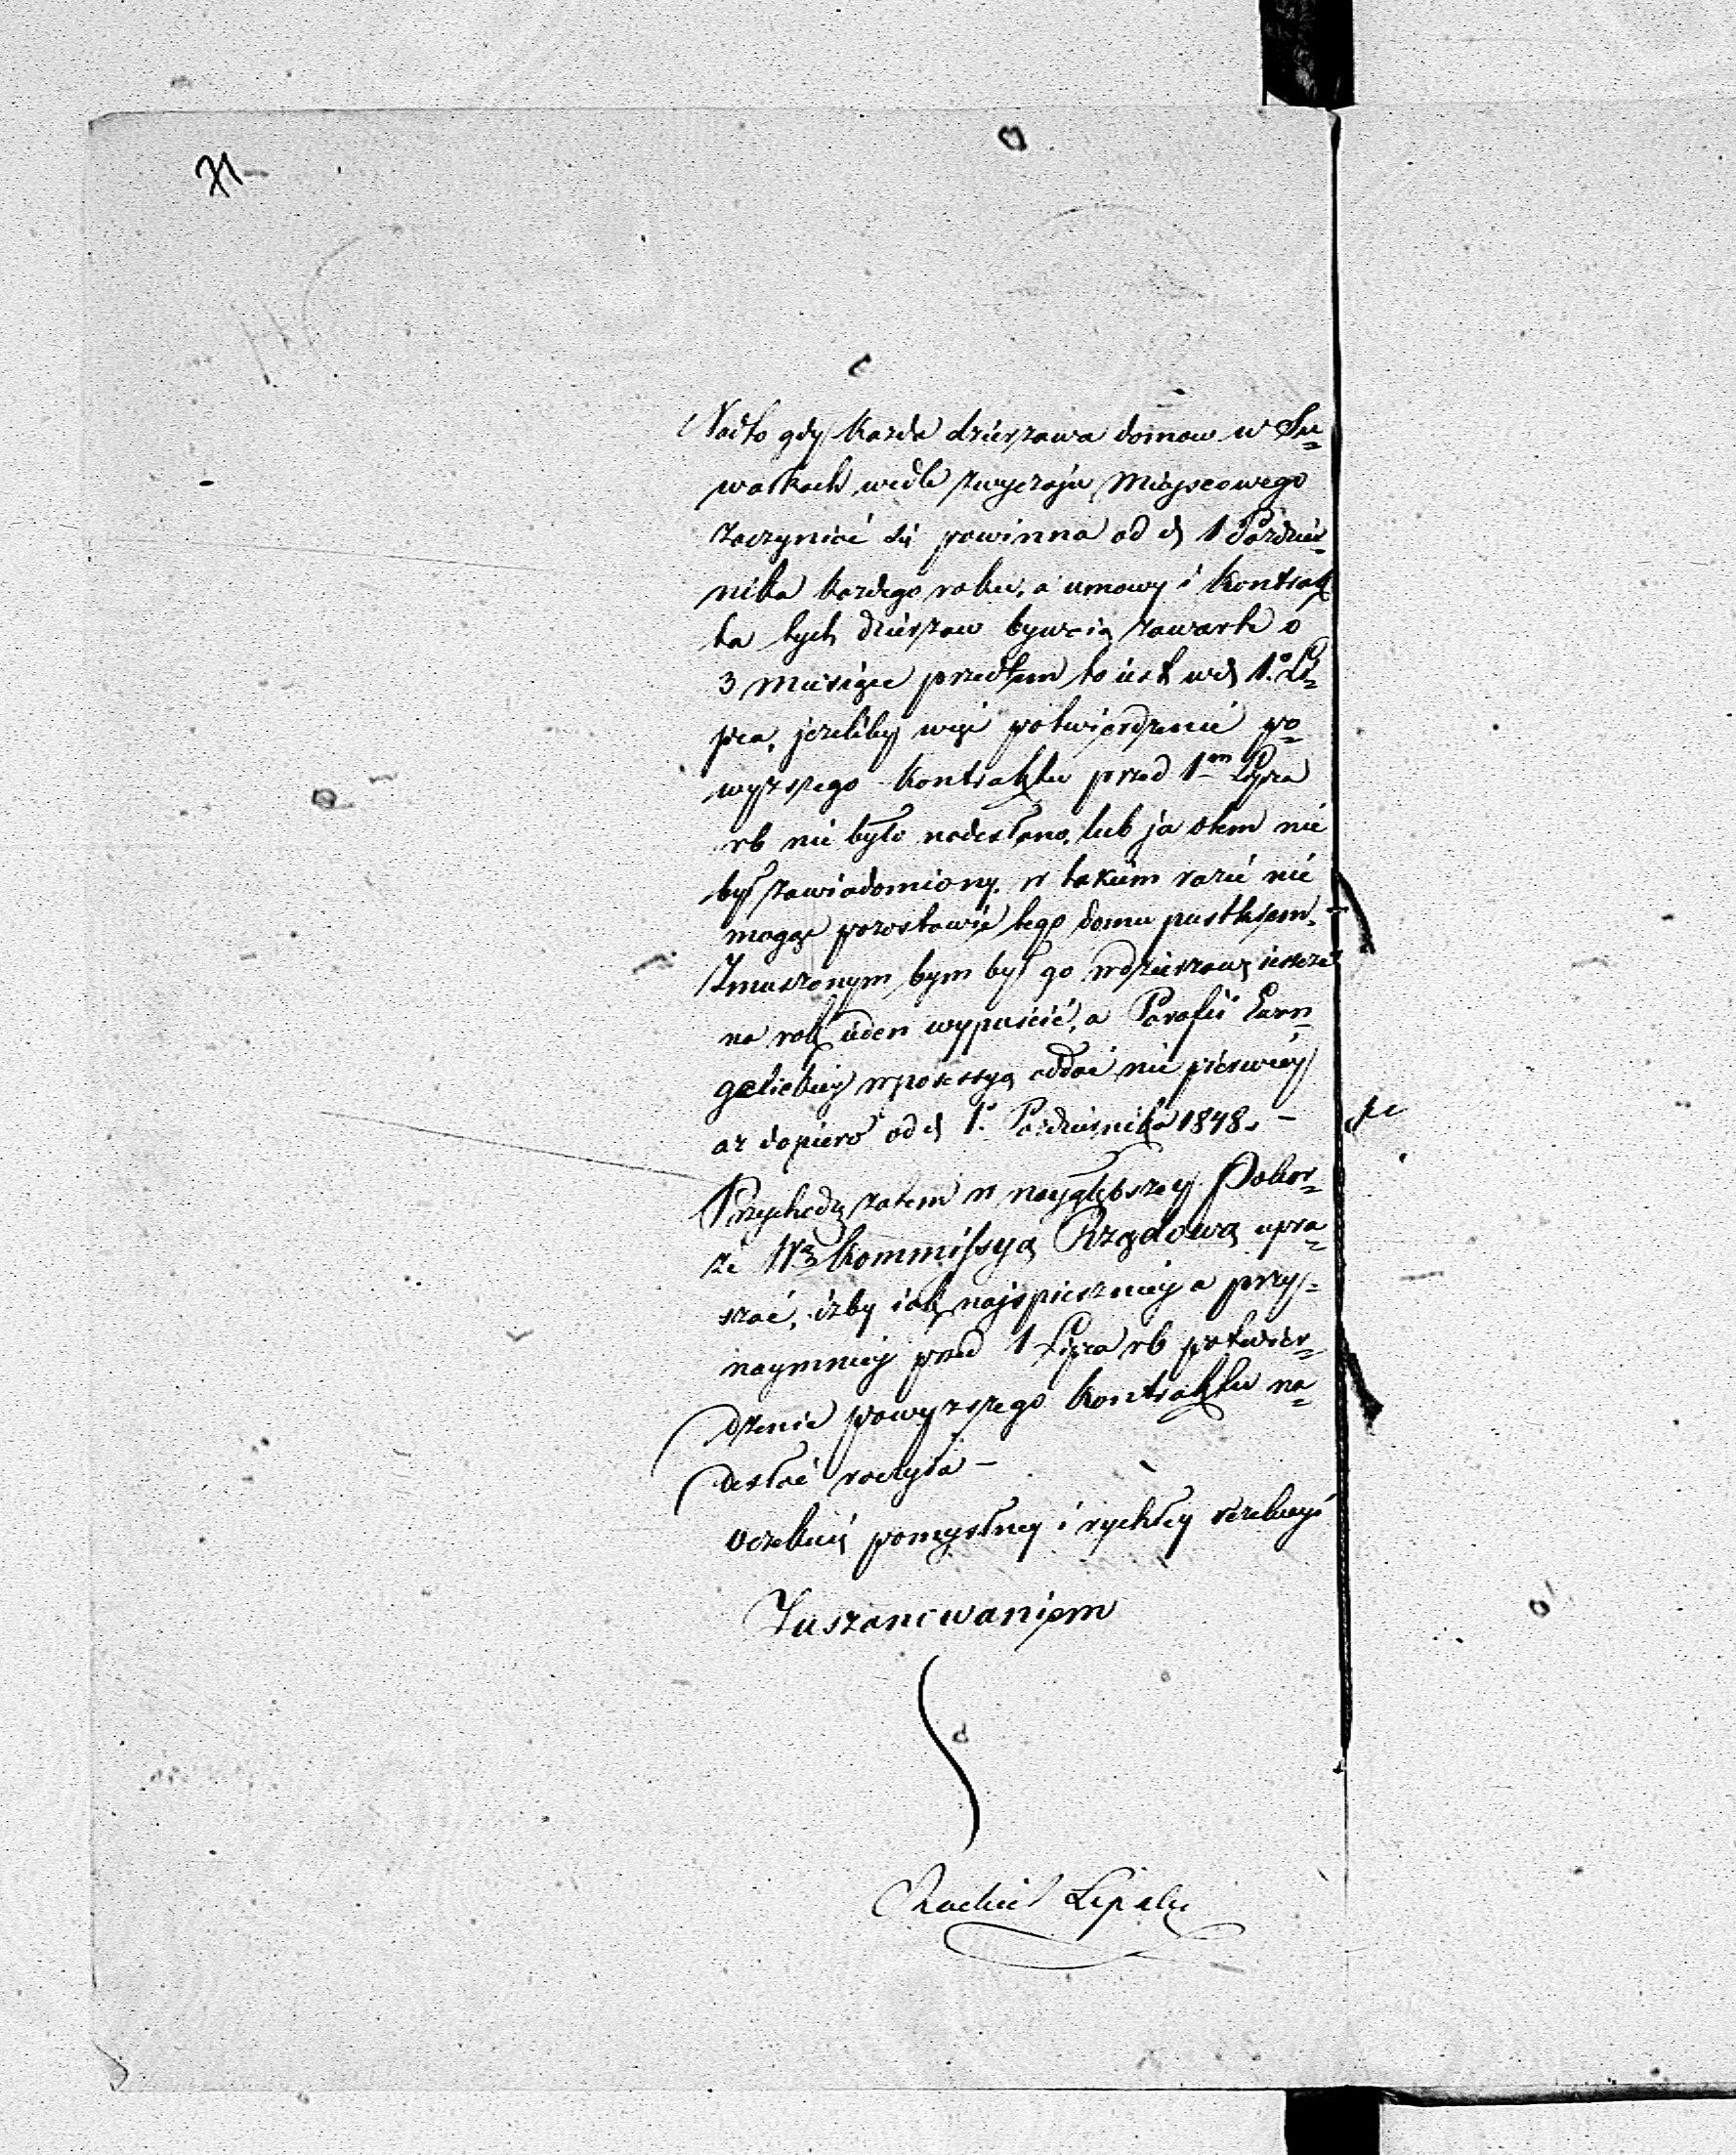 71
Nadto gdy każda dzierżawa domow w Su=
wałkach wedle zwyczaju Miejscowego
zaczynać się powinna od d 1 Paździer=
nika każdego roku, a umowy i kontrak
ta tych dzierżaw bywaią zawarte o
3 Miesiące przedtem to iest w d 1o Li=
pca, jeżeliby więc potwierdzenie po=
wyższego kontraktu przed 1m Lipca
rb nie było nadesłane, lub ja otem nie
był zawiadomiony, w takim razie nie
mogąc pozostawić tego domu pustkiem,
Zmuszonym bym był go w dzierżawę ieszcze
na rok ieden wypuścić, a Parafii Ewan=
gelickiey w possessyą oddać nie pierwiey
aż dopiero od d 1o Października 1848. –
Przychodzę zatem w naygłębszey Pokor=
ze Wą Kommissyą Rządową upra=
szać, iżby iak najspieszniey a przy=
naymniey przed 1 Lipca rb potwier=
dzenie powyższego kontraktu na=
desłać raczyła –
Oczekuię pomyślney i rychłey rezolucyi
Zuszanowaniem